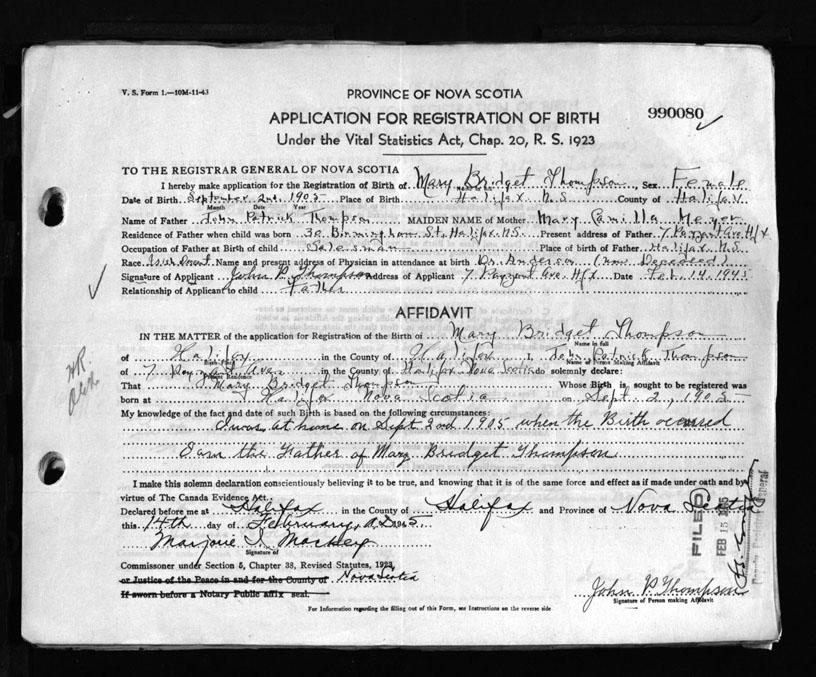 V. S. Form 1.—10M-11-43
PROVINCE OF NOVA SCOTIA
990080
APPLICATION FOR REGISTRATION OF BIRTH
Under the Vital Statistics Act, Chap. 20, R. S. 1923
TO THE REGISTRAR GENERAL OF NOVA SCOTIA
I hereby make application for the Registration of Birth of Mary Bridget Thompson, Sex Female
Date of Birth September 2nd, 1905 Place of Birth Halifax N.S County of Halifax
Month Date Year
Name of Father John Patrick Thompson MAIDEN NAME of Mother Mary Camilla
Residence of Father when child was born 30 Birmingham St. Halifax N.S Present address of Father 7 Ave Hfx
Occupation of Father at Birth of child Salesman Place of birth of Father Halifax N.S.
Race Name and present address of Physician in attendance at birth Dr. Anderson (now Deceased)
Signature of Applicant John P. Thompson Address of Applicant 7 Ave. Hfx Date Feb. 14. 1945
Relationship of Applicant to child Father
AFFIDAVIT
IN THE MATTER of the application for Registration of the Birth of Mary Bridget Thompson
Name in full
of Halifax in the County of Halifax I, John Patrick Thompson
Birth Place Name of Person Making Affidavit
of 7 Ave in the County of Halifax Nova Scotia do solemnly declare:
Present Residence
That Mary Bridget Thompson Whose Birth is sought to be registered was
born at Halifax Nova Scotia on Sept 2, 1905
My knowledge of the fact and date of such Birth is based on the following circumstances:
I was at home on Sept 2nd 1905 when the Birth occurred
I am the Father of Mary Bridget Thompson
I make this solemn declaration conscientiously believing it to be true, and knowing that it is of the same force and effect as if made under oath and by
virtue of The Canada Evidence Act.
Declared before me at Halifax in the County of Halifax and Province of Nova Scotia
this 14th day of February, A.D. 1945
Marjorie I. Mackey
Signature of
Commissioner under Section 5, Chapter 38, Revised Statutes, 1923,
or Justice of the Peace in and for the County of Nova Scotia
If sworn before a Notary Public affix seal.
John P. Thompson
Signature of Person making Affidavit
For Information regarding the filling out of this Form, see Instructions on the reverse side
FILED
FEB 15
Deputy Registrar General